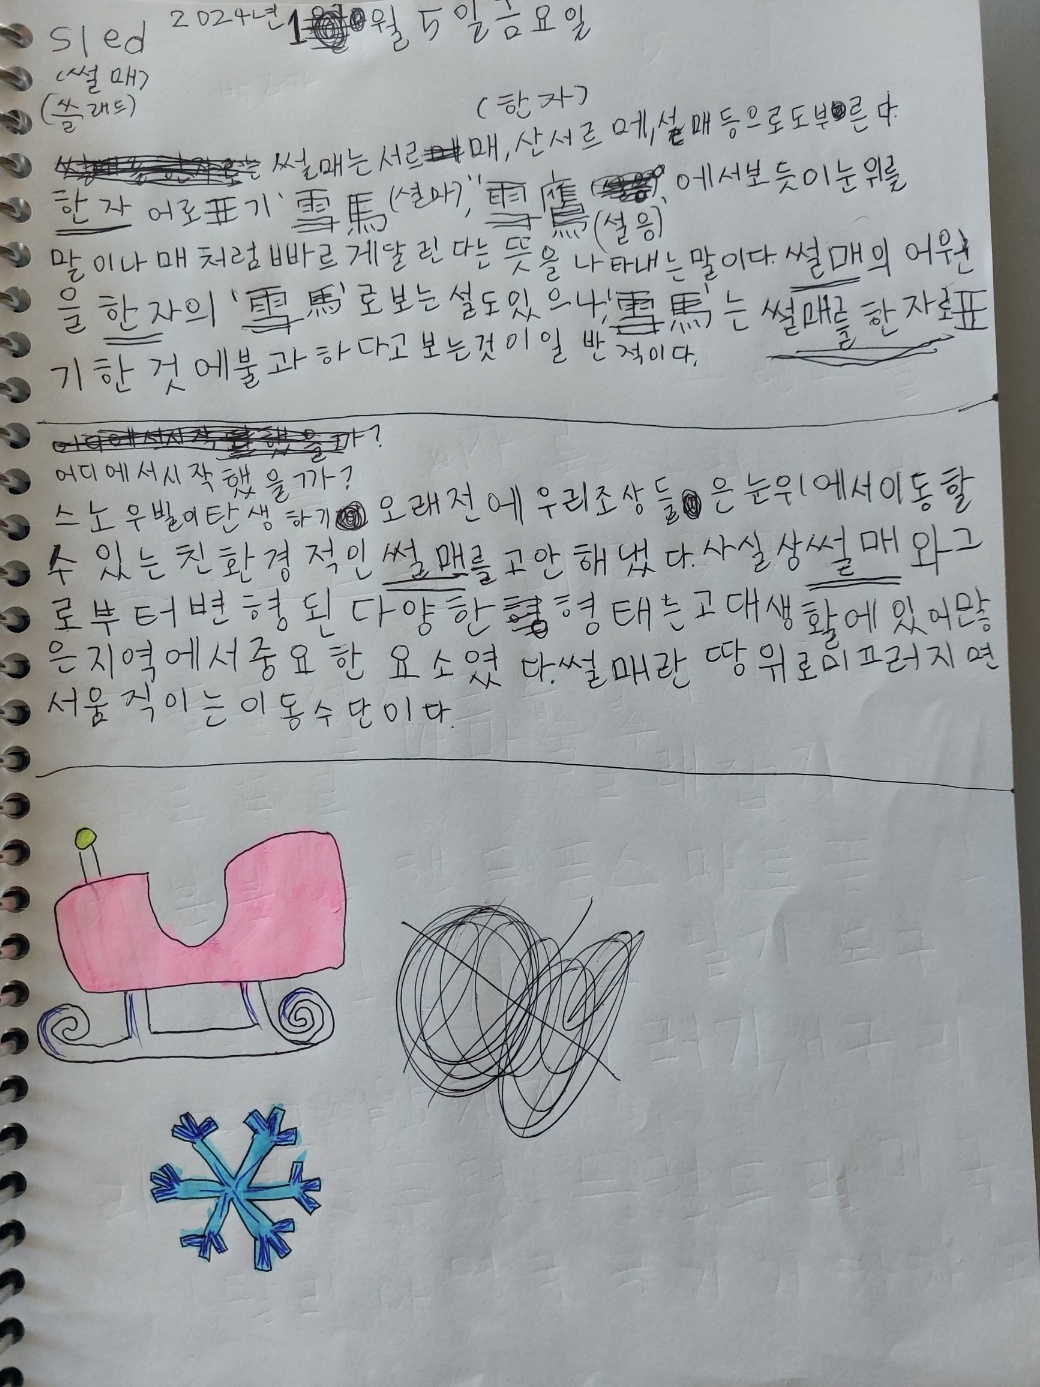 sled 2024년 1월 5일 금요일
(썰매)
(쓸래드)
(한자)
썰매는 서르매, 산서르 메, 설매 등으로도 부른다.
한자어로 표기 '雪馬(설마)', '雪鷹(설응)'에서 보듯이 눈 위를
말이나 매처럼 빠르게 달린다는 뜻을 나타내는 말이다. 썰매의 어원
을 한자의 '雪馬'로 보는 설도 있으나, '雪馬'는 썰매를 한자로 표
기한 것에 불과하다고 보는 것이 일반적이다.
어디에서 시작했을까?
어디에서 시작했을까?
스노우빌이 탄생하기 오래전에 우리 조상들은 눈 위에서 이동할
수 있는 친환경적인 썰매를 고안해냈다. 사실상 썰매와 그
로부터 변형된 다양한 형태는 고대 생활에 있어 많
은 지역에서 중요한 요소였다. 썰매란 땅 위로 미끄러지면
서 움직이는 이동수단이다.